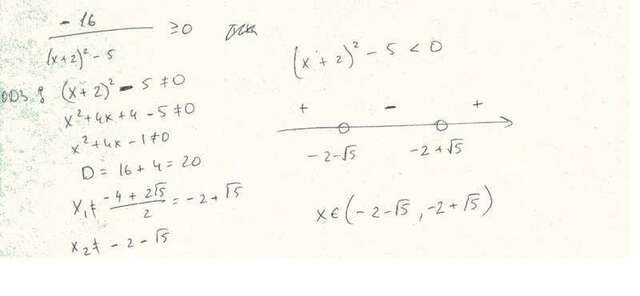 -16 / ((x+2)² - 5) ≥ 0
ОДЗ: (x+2)² - 5 ≠ 0
x² + 4x + 4 - 5 ≠ 0
x² + 4x - 1 ≠ 0
D = 16 + 4 = 20
x₁ ≠ (-4 + 2√5) / 2 = -2 + √5
x₂ ≠ -2 - √5
(x + 2)² - 5 < 0
+ - +
-2-√5 -2+√5
x ∈ (-2-√5, -2+√5)